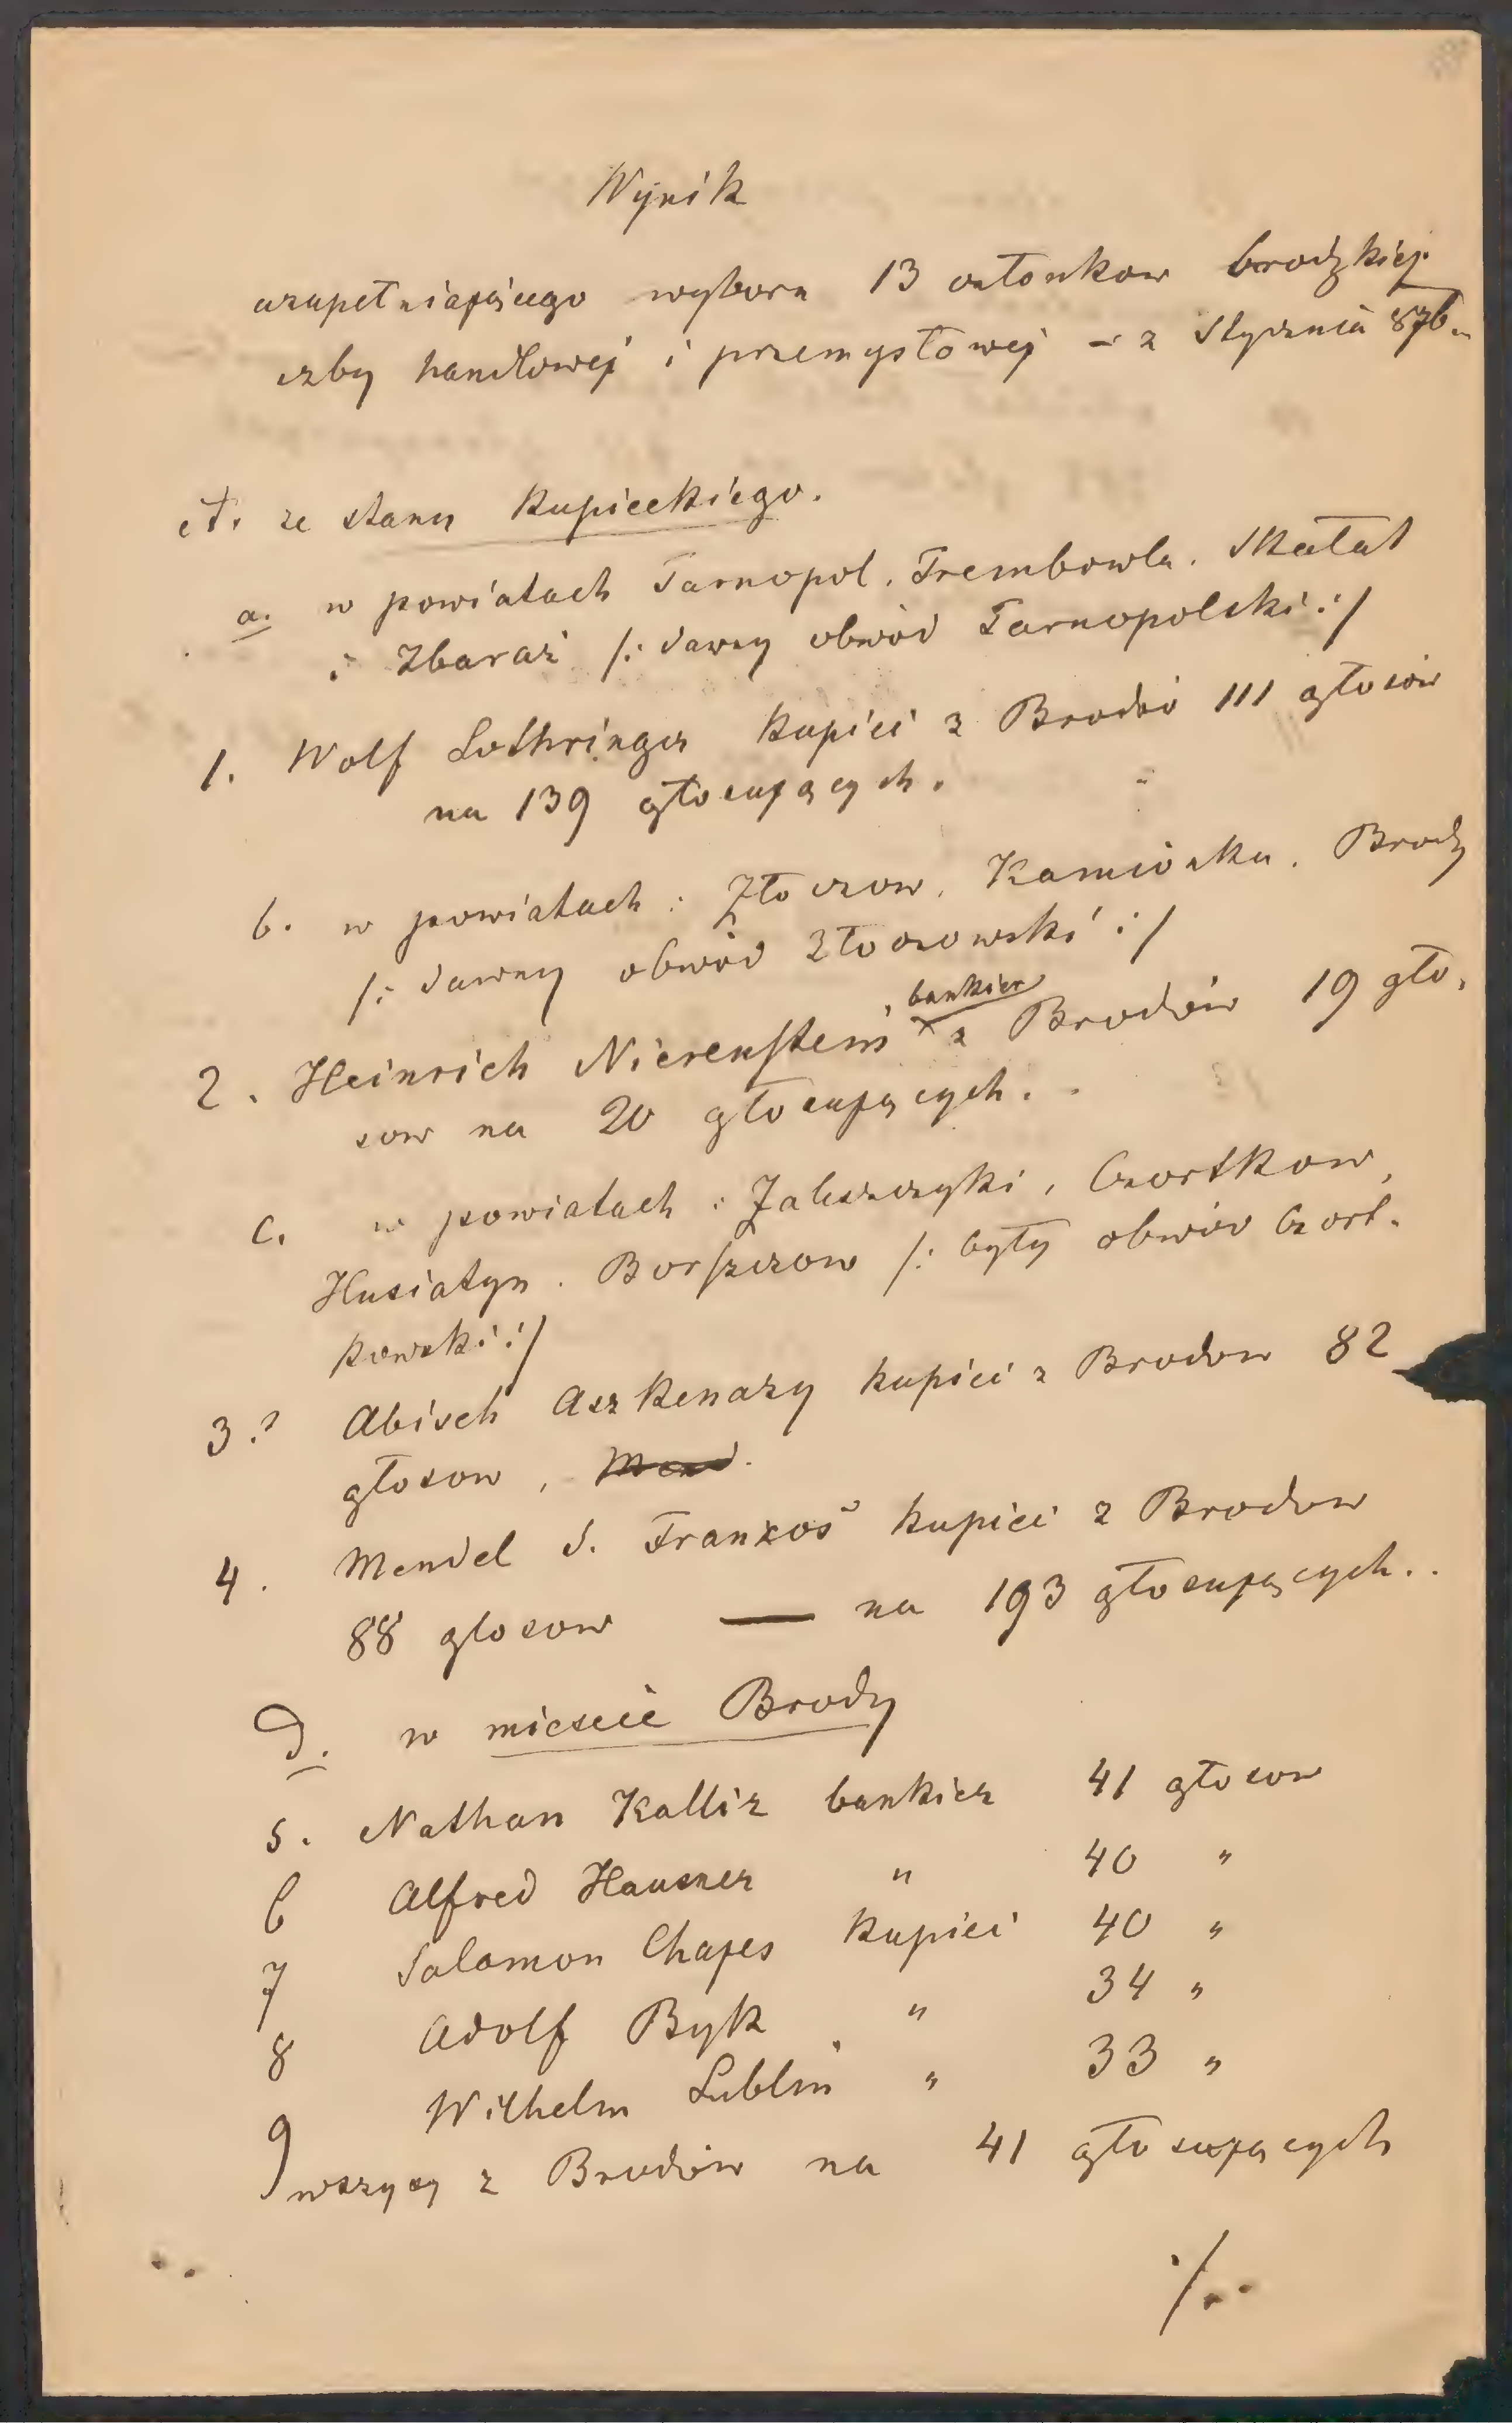 Wynik
uzupełniającego wyboru 13 członkow brodzkiej
izby handlowej i przemysłowej – z Stycznia 876.
A. ze stanu kupieckiego.
a. w powiatach Tarnopol, Trembowla, Skałat
i Zbaraż /: dawny obwód Tarnopolski :/
1. Wolf Lothringer kupiec z Brodów 111 głosów
na 139 głosujących.
b. w powiatach : Złoczow, Kamionka, Brody
/: dawny obwód Złoczowski :/
, bankier
2. Heinrich Nierenstein z Brodów 19 gło-
sow na 20 głosujących.
c. w powiatach : Zaleszczyki, Czortkow,
Husiatyn, Borszczow /: były obwód Czort-
kowski :/
3. Abisch Aszkenazy kupiec z Brodow 82
głosow, Mend.
4. Mendel S. Franzos kupiec z Brodow
88 glosow — na 193 głosujących..
d. w miescie Brody
5. Nathan Kallir bankier 41 głosow
6 Alfred Hausner " 40 "
7 Salamon Chajes kupiec 40 "
8 Adolf Byk " 34 "
9 Wilhelm Lublin " 33 "
wszyscy z Brodów na 41 głosujących
./..